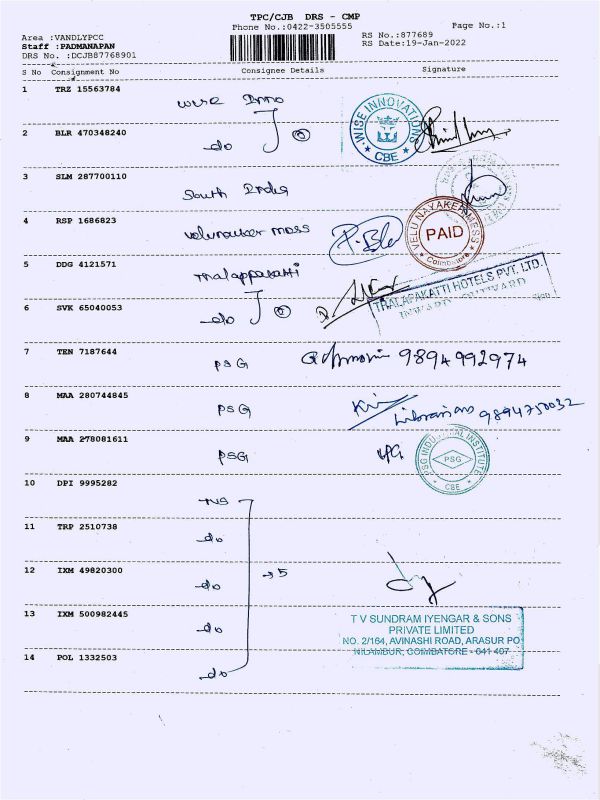 TPC/CJB DRS - CMP
Phone No.:0422-3505555 Page No.:1
Area :VANDLYPCC RS No.:877689
Staff :PADMANAPAN RS Date:19-Jan-2022
DRS No. :DCJB87768901
S No Consignment No Consignee Details Signature
1 TRZ 15563784
wise Inno
WISE INNOVATIONS
CBE
2 BLR 470348240
do 2
3 SLM 287700110
South India
4 RSP 1686823
VELU NAYAKER MESS
PAID
Coimbatore
5 DDG 4121571
Thalappakatti
THALAPAKATTI HOTELS PVT. LTD.
INWARD / OUTWARD
6 SVK 65040053
do 2
7 TEN 7187644
PSG 9894992974
8 MAA 280744845
PSG Librarian 9894750032
9 MAA 278081611
PSG
PSG INDUSTRIAL INSTITUTE
PSG
CBE
10 DPI 9995282
TVS
11 TRP 2510738
do
12 IXM 49820300
do 5
13 IXM 500982445
do
T V SUNDRAM IYENGAR & SONS
PRIVATE LIMITED
NO. 2/164, AVINASHI ROAD, ARASUR PO
NILAMBUR, COIMBATORE - 641 407
14 POL 1332503
do